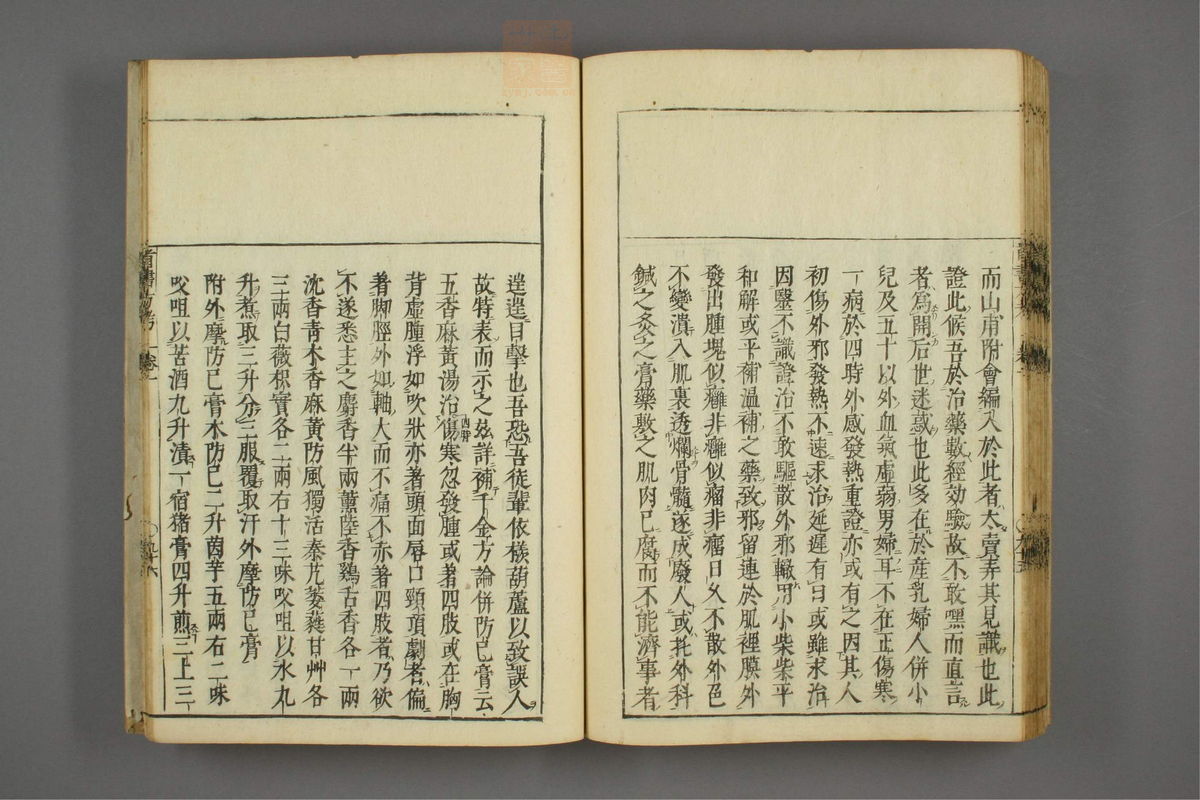 而山甫附會編入於此者太賣弄其見識也此
證此候吾於治藥數經効驗故不敢嘿而直言
者爲開后世迷惑也此多在於產乳婦人併小
兒及五十以外血氣虛弱男婦耳不在正傷寒
一病於四時外感發熱重證亦或有之因其人
初傷外邪發熱不速求治延遲有日或雖求治
因醫不識證治不敢驅散外邪輙用小柴柴平
和解或平補溫補之藥致邪留連於肌裡膜外
發出腫塊似癰非癰似瘤非瘤日久不散外色
不變潰入肌裏透爛骨髓遂成廢人或托外科
鍼之灸之膏藥敷之肌肉已腐而不能濟事者
遑遑目擊也吾恐吾徒輩依樣葫蘆以致誤人
故特表而示之玆詳補千金方論併防已膏云
五香麻黃湯治傷寒忽發腫或著四肢或在胸
背虛腫浮如吹狀亦著頭面唇口頸項劇者偏
著脚脛外如軸大而不痛不赤著四肢者乃欲
不遂悉主之麝香半兩薰陸香鷄舌香各一兩
沈香青木香麻黃防風獨活秦艽萎蕤甘艸各
三兩白薇枳實各二兩右十三味㕮咀以水九
升煮取三升分三服覆取汗外摩防已膏
附外摩防已膏木防已二升茵芋五兩右二味
㕮咀以苦酒九升漬一宿猪膏四升煎三上三